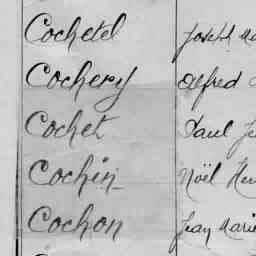 Cochetel Joseph
Cochery Alfred
Cochet Paul
Cochin Noël
Cochon Jean Marie